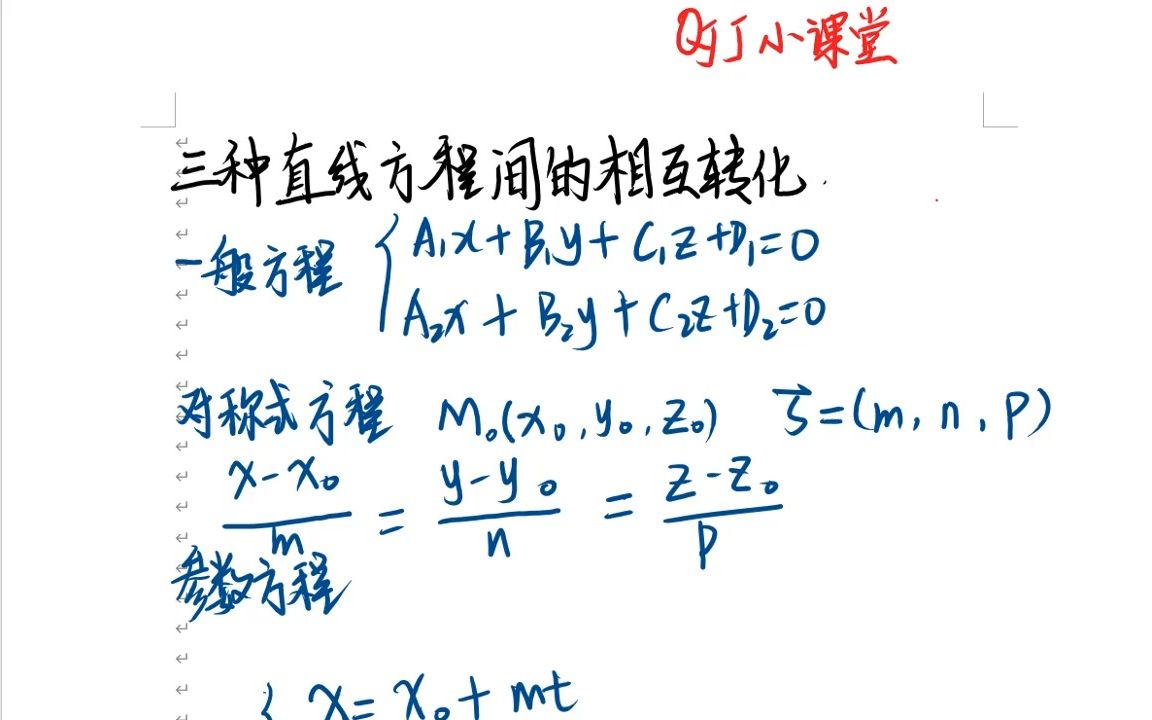 QJJ小课堂
三种直线方程间的相互转化.
一般方程 { A₁x+B₁y+C₁z+D₁=0
A₂x+B₂y+C₂z+D₂=0
对称式方程 M₀(x₀,y₀,z₀) s⃗=(m,n,p)
x-x₀/m = y-y₀/n = z-z₀/p
参数方程
{ x=x₀+mt